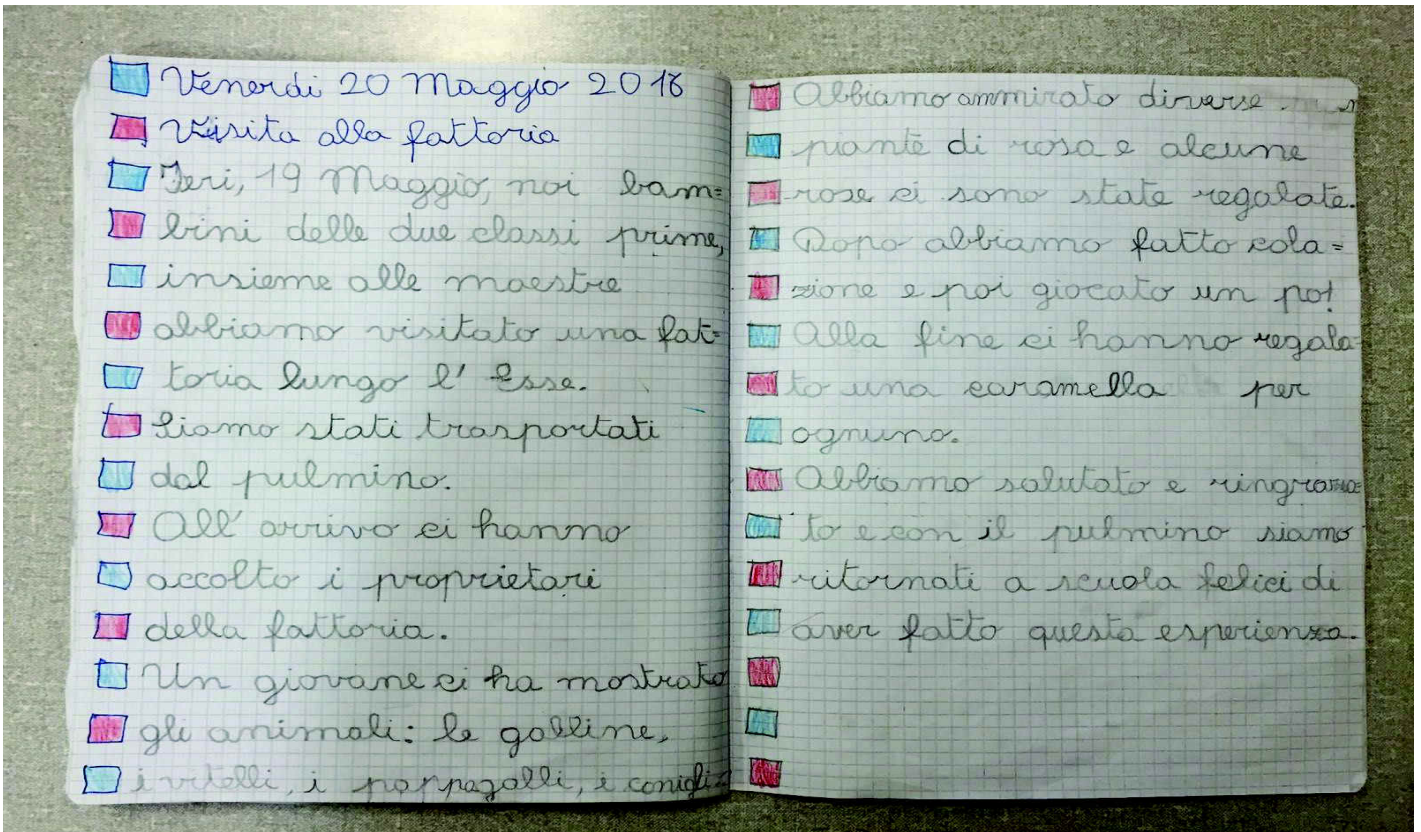 Venerdi 20 Maggio 2016
Visita alla fattoria
Ieri, 19 Maggio, noi bam=
bini delle due classi prime,
insieme alle maestre
abbiamo visitato una fat=
toria lungo l' Esse.
Siamo stati trasportati
dal pulmino.
All' arrivo ci hanno
accolto i proprietari
della fattoria.
Un giovane ci ha mostrato
gli animali: le galline,
i vitelli, i pappagalli, i conigli=
Abbiamo ammirato diverse
piante di rosa e alcune
rose ci sono state regalate.
Dopo abbiamo fatto cola=
zione e poi giocato un po!
Alla fine ci hanno regala=
to una caramella per
ognuno.
Abbiamo salutato e ringrazia=
to e con il pulmino siamo
ritornati a scuola felici di
aver fatto questa esperienza.